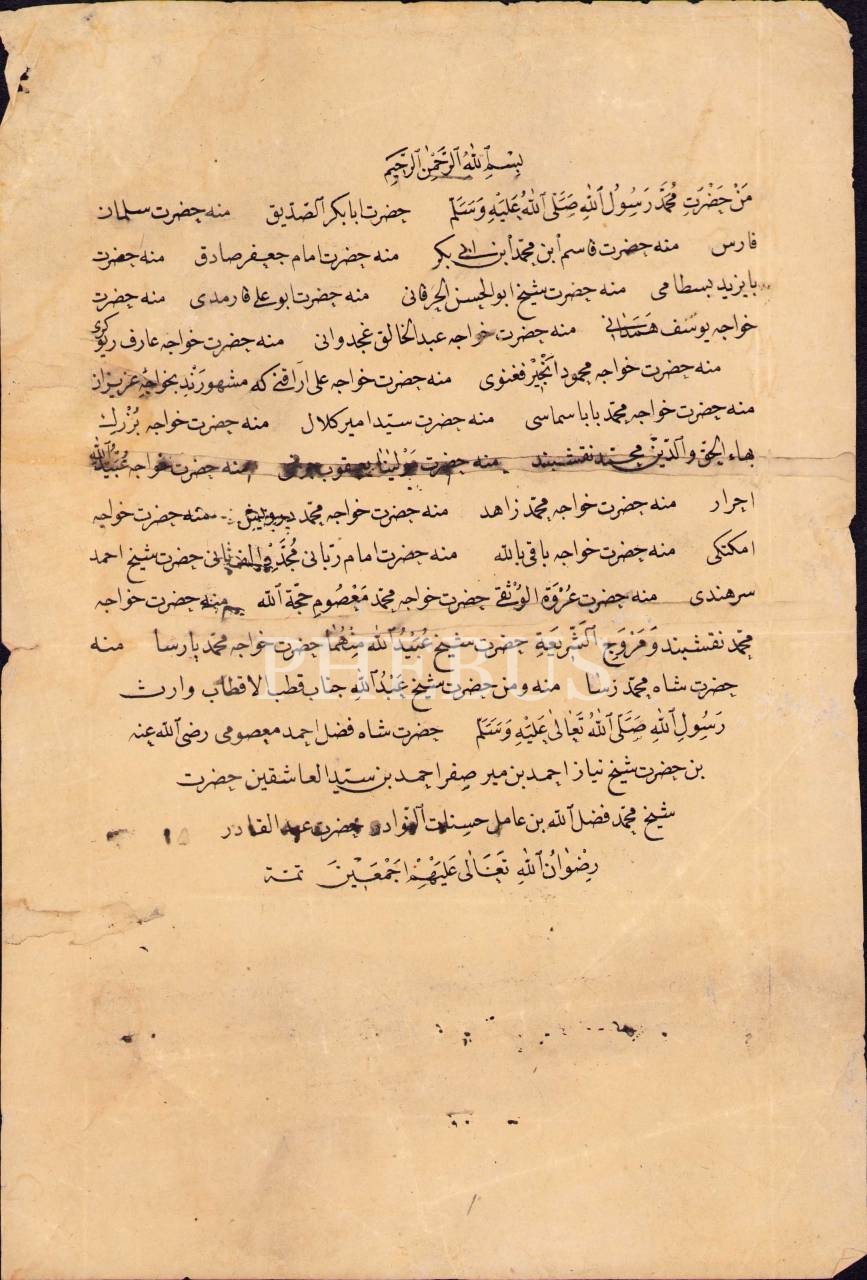 بِسْمِ ٱللهِ ٱلرَّحْمٰنِ ٱلرَّحِيمِ
مَنْ حَضْرَتِ مُحَمَّدْ رَسُولُ ٱللهِ صَلَّى ٱللهُ عَلَيْهِ وَسَلَّمْ حضرت ابابكر ٱلصّدّيق منه حضرت سلمان
فارس منه حضرت قاسم ابن محمّد ابن ابى بكر منه حضرت امام جعفر صادق منه حضرت
بايزيد بسطامى منه حضرت شيخ ابو الحسن الخرقانى منه حضرت ابو على فارمدى منه حضرت
خواجه يوسف همدانى منه حضرت خواجه عبد الخالق غجدوانى منه حضرت خواجه عارف ريوكرى
منه حضرت خواجه محمود انْجِيْر فغنوى منه حضرت خواجه على كه مشهورند بخواجه عزيزان
منه حضرت خواجه محمّد بابا سماسى منه حضرت سيّد امير كلال منه حضرت خواجه بُزْرك
بهاء الحق والدّين محمّد نقشبند منه حضرت مولينا يعقوب منه حضرت خواجه عُبَيْدُ ٱللهْ
احرار منه حضرت خواجه محمّد زاهد منه حضرت خواجه محمّد منه حضرت خواجه
امكنكى منه حضرت خواجه باقى بالله منه حضرت امام ربّانى مُجَدّد الف ثانى حضرت شيخ احمد
سرهندى منه حضرت عُرْوَة الوُثْقٰى حضرت خواجه محمّد مَعْصُومِ حجّة ٱلله منه حضرت خواجه
محمّد نقشبند وَمُرَوِّج ٱلشَّرِيعَةِ حضرت شيخ عُبَيْدُ ٱلله مِنْهُمَا حضرت خواجه محمّد پارسا منه
حضرت شاه محمّد رسا منه ومن حضرت شيخ عَبْدُ ٱللهِ جناب قطب الاقطاب وارث
رَسُولِ ٱللهِ صَلَّى ٱللهُ تَعَالٰى عَلَيْهِ وَسَلَّمْ حضرت شاه فضل احمد معصومى رضى ٱلله عنه
بن حضرت شيخ نياز احمد بن مير صفر احمد بن سيّد العاشقين حضرت
شيخ محمّد فضل ٱلله بن عامل حسنات حضرت عبد القادر
رِضْوَانُ ٱللهِ تَعَالٰى عَلَيْهِمْ اَجْمَعِيْنَ تمّة
PHEBUS